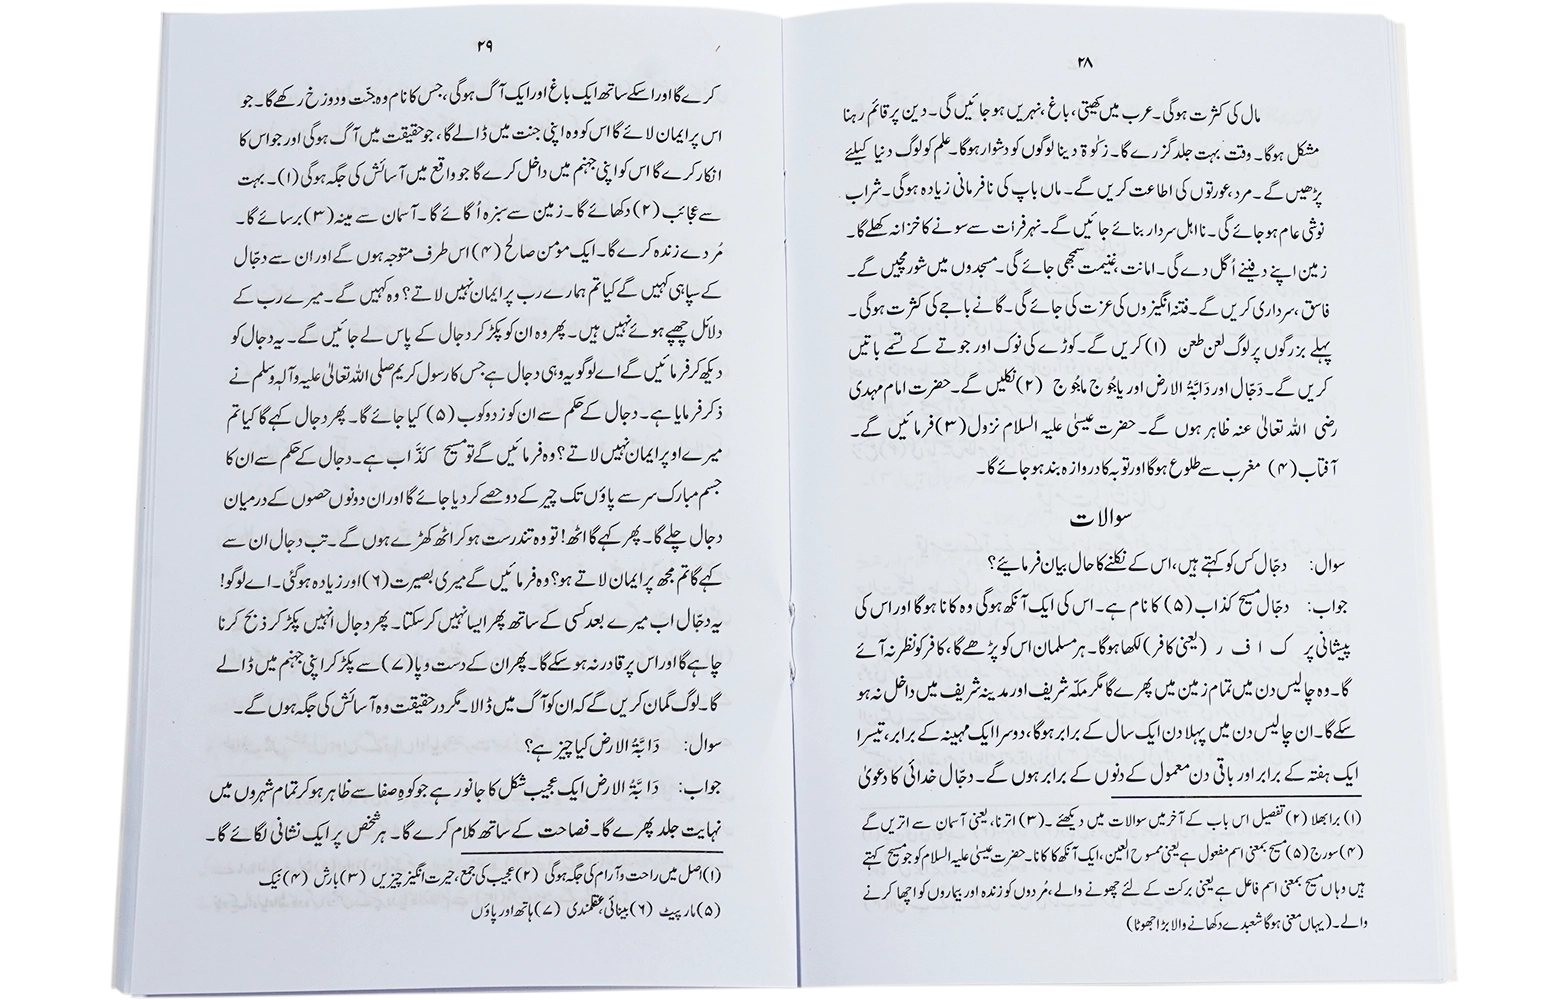 ۲۸
مال کی کثرت ہوگی۔ عرب میں کھیتی، باغ، نہریں ہو جائیں گی۔ دین پر قائم رہنا
مشکل ہوگا۔ وقت بہت جلد گزرے گا۔ زکوٰۃ دینا لوگوں کو دشوار ہوگا۔ علم کو لوگ دنیا کیلئے
پڑھیں گے۔ مرد، عورتوں کی اطاعت کریں گے۔ ماں باپ کی نافرمانی زیادہ ہوگی۔ شراب
نوشی عام ہو جائے گی۔ نااہل سردار بنائے جائیں گے۔ نہر فرات سے سونے کا خزانہ کھلے گا۔
زمین اپنے دفینے اُگل دے گی۔ امانت، غنیمت سمجھی جائے گی۔ مسجدوں میں شور مچیں گے۔
فاسق، سرداری کریں گے۔ فتنہ انگیزوں کی عزت کی جائے گی۔ گانے باجے کی کثرت ہوگی۔
پہلے بزرگوں پر لوگ لعن طعن (۱) کریں گے۔ کوڑے کی نوک اور جوتے کے تسمے باتیں
کریں گے۔ دَجّال اور دَابَّۃُ الارض اور یاجُوج ماجُوج (۲) نکلیں گے۔ حضرت امام مہدی
رضی اللہ تعالیٰ عنہ ظاہر ہوں گے۔ حضرت عیسیٰ علیہ السلام نزول (۳) فرمائیں گے۔
آفتاب (۴) مغرب سے طلوع ہوگا اور توبہ کا دروازہ بند ہو جائے گا۔
سوالات
سوال: دجّال کس کو کہتے ہیں، اس کے نکلنے کا حال بیان فرمائیے؟
جواب: دجّال مسیح کذاب (۵) کا نام ہے۔ اس کی ایک آنکھ ہوگی وہ کانا ہوگا اور اس کی
پیشانی پر ک ا ف ر (یعنی کافر) لکھا ہوگا۔ ہر مسلمان اس کو پڑھے گا، کافر کو نظر نہ آئے
گا۔ وہ چالیس دن میں تمام زمین میں پھرے گا مگر مکّہ شریف اور مدینہ شریف میں داخل نہ ہو
سکے گا۔ ان چالیس دن میں پہلا دن ایک سال کے برابر ہوگا، دوسرا ایک مہینہ کے برابر، تیسرا
ایک ہفتہ کے برابر اور باقی دن معمول کے دنوں کے برابر ہوں گے۔ دجّال خدائی کا دعویٰ
(۱) برا بھلا (۲) تفصیل اس باب کے آخر میں سوالات میں دیکھئے۔ (۳) اترنا، یعنی آسمان سے اتریں گے
(۴) سورج (۵) مسیح بمعنی اسم مفعول ہے یعنی ممسوح العین، ایک آنکھ کا کانا۔ حضرت عیسیٰ علیہ السلام کو جو مسیح کہتے
ہیں وہاں مسیح بمعنی اسم فاعل ہے یعنی برکت کے لئے چھونے والے، مُردوں کو زندہ اور بیماروں کو اچھا کرنے
والے۔ (یہاں معنی ہوگا شعبدے دکھانے والا بڑا جھوٹا)
۲۹
کرے گا اور اسکے ساتھ ایک باغ اور ایک آگ ہوگی، جس کا نام وہ جنّت و دوزخ رکھے گا۔ جو
اس پر ایمان لائے گا اس کو وہ اپنی جنت میں ڈالے گا، جو حقیقت میں آگ ہوگی اور جو اس کا
انکار کرے گا اس کو اپنی جہنم میں داخل کرے گا جو واقع میں آسائش کی جگہ ہوگی (۱)۔ بہت
سے عجائب (۲) دکھائے گا۔ زمین سے سبزہ اُگائے گا۔ آسمان سے مینہ (۳) برسائے گا۔
مُردے زندہ کرے گا۔ ایک مؤمن صالح (۴) اس طرف متوجہ ہوں گے اور ان سے دجّال
کے سپاہی کہیں گے کیا تم ہمارے رب پر ایمان نہیں لاتے؟ وہ کہیں گے۔ میرے رب کے
دلائل چھپے ہوئے نہیں ہیں۔ پھر وہ ان کو پکڑ کر دجال کے پاس لے جائیں گے۔ یہ دجال کو
دیکھ کر فرمائیں گے اے لوگو یہ وہی دجال ہے جس کا رسول کریم صلی اللہ تعالیٰ علیہ وآلہ وسلم نے
ذکر فرمایا ہے۔ دجال کے حکم سے ان کو زد و کوب (۵) کیا جائے گا۔ پھر دجال کہے گا کیا تم
میرے اوپر ایمان نہیں لاتے؟ وہ فرمائیں گے تو مسیح کذَّاب ہے۔ دجال کے حکم سے ان کا
جسم مبارک سر سے پاؤں تک چیر کے دو حصے کر دیا جائے گا اور ان دونوں حصوں کے درمیان
دجال چلے گا۔ پھر کہے گا اٹھ! تو وہ تندرست ہو کر اٹھ کھڑے ہوں گے۔ تب دجال ان سے
کہے گا تم مجھ پر ایمان لاتے ہو؟ وہ فرمائیں گے میری بصیرت (۶) اور زیادہ ہوگئی۔ اے لوگو!
یہ دجّال اب میرے بعد کسی کے ساتھ پھر ایسا نہیں کر سکتا۔ پھر دجال انہیں پکڑ کر ذبح کرنا
چاہے گا اور اس پر قادر نہ ہو سکے گا۔ پھر ان کے دست و پا (۷) سے پکڑ کر اپنی جہنم میں ڈالے
گا۔ لوگ گمان کریں گے کہ ان کو آگ میں ڈالا۔ مگر در حقیقت وہ آسائش کی جگہ ہوں گے۔
سوال: دَابَّۃُ الارض کیا چیز ہے؟
جواب: دَابَّۃُ الارض ایک عجیب شکل کا جانور ہے جو کوہِ صفا سے ظاہر ہو کر تمام شہروں میں
نہایت جلد پھرے گا۔ فصاحت کے ساتھ کلام کرے گا۔ ہر شخص پر ایک نشانی لگائے گا۔
(۱) اصل میں راحت و آرام کی جگہ ہوگی (۲) عجیب کی جمع، حیرت انگیز چیزیں (۳) بارش (۴) نیک
(۵) مار پیٹ (۶) بینائی، عقلمندی (۷) ہاتھ اور پاؤں